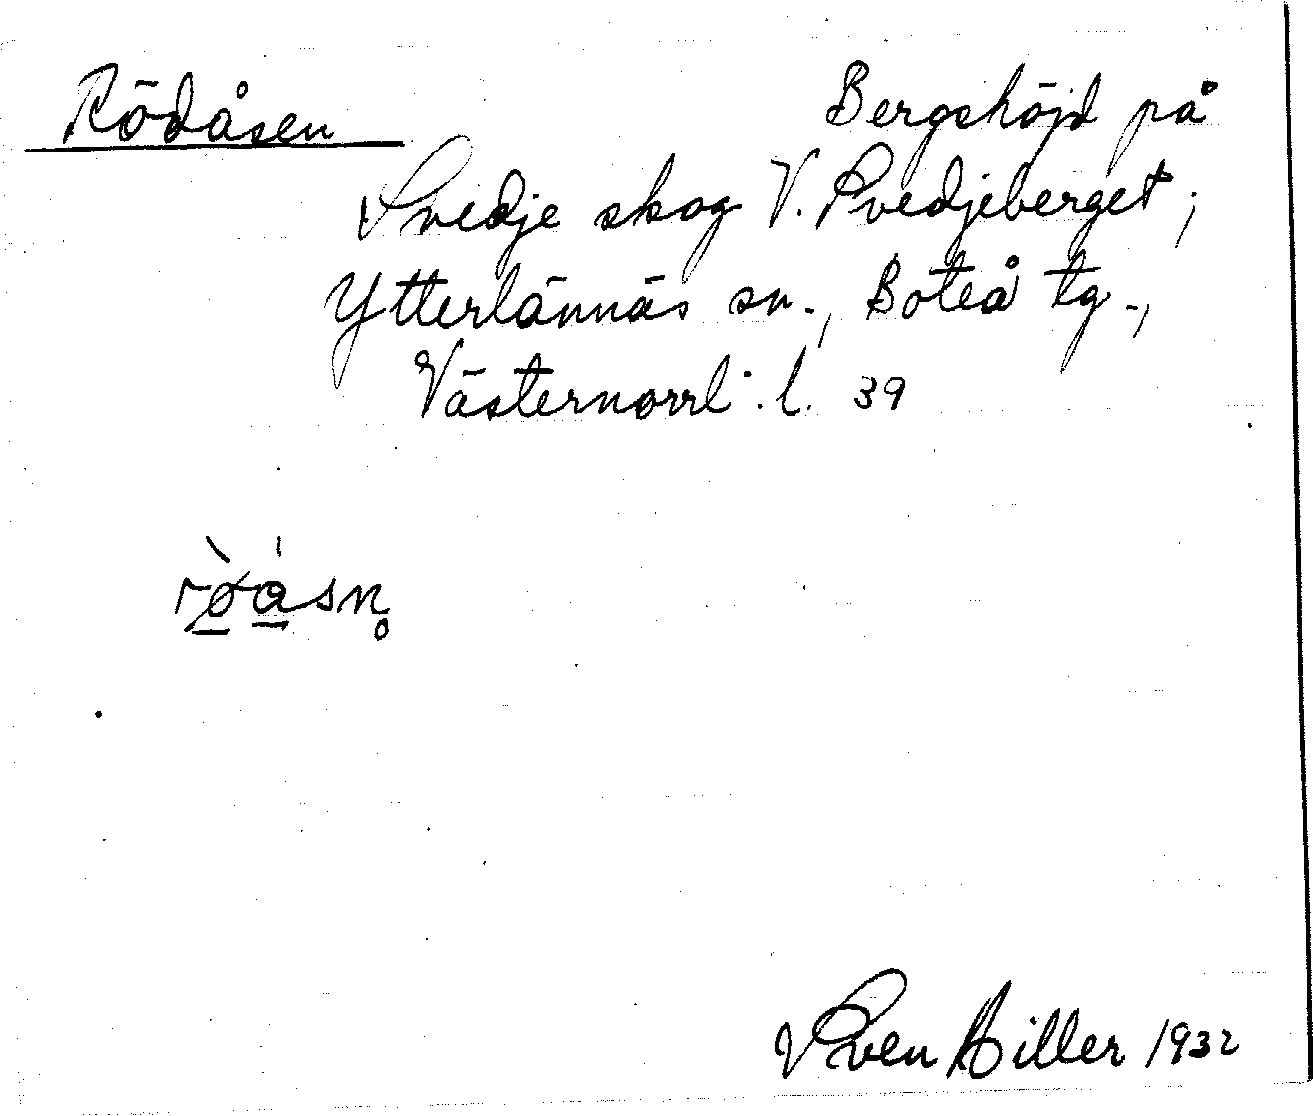 Rödåsen Bergshöjd på
Svedje skog V. Svedjeberget,
Ytterlännäs sn., Boteå tg.,
Västernorrl. l. 39
Sven Hiller 1932